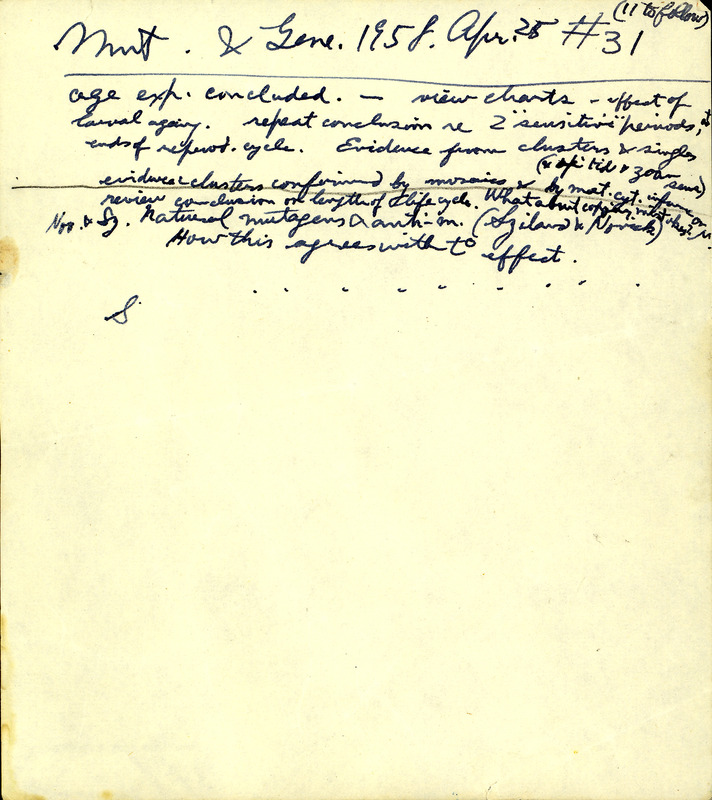 (11 to follow)
Mut. & Gene. 1958. Apr. 25 #31
age exp. concluded. — view charts - effect of
larval aging. repeat conclusion re 2 "sensitive" periods, at
ends of reprod. cycle. Evidence from clusters & singles
(& 30
evidence clusters confirmed by mosaics & by mat. cyt.
review conclusion on length of life cycle. What about copying mistakes?
Nov. & Sz. Natural mutagens & anti-m. (Szilard & Novick)
How this agrees with t° effect.
S